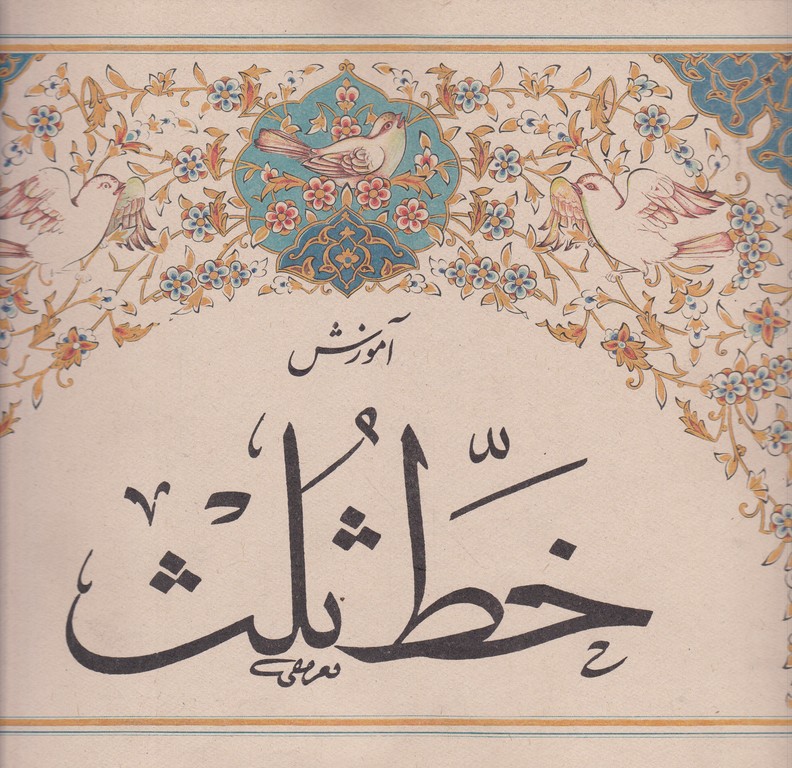 آموزش
خطِّ ثُلث